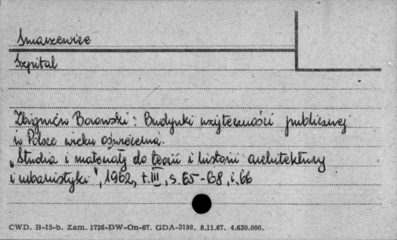 Smarzewice
Szpital
Zbigniew Borowski: Budynki użyteczności publicznej
w Polsce wieku oświecenia.
"Studia i materiały do teorii i historii architektury
i urbanistyki", 1962, t. III, s. 65-68, i. 66
CWD. B-13-b. Zam. 1726-DW-On-67. GDA-3198. 8.11.67. 4.630.000.